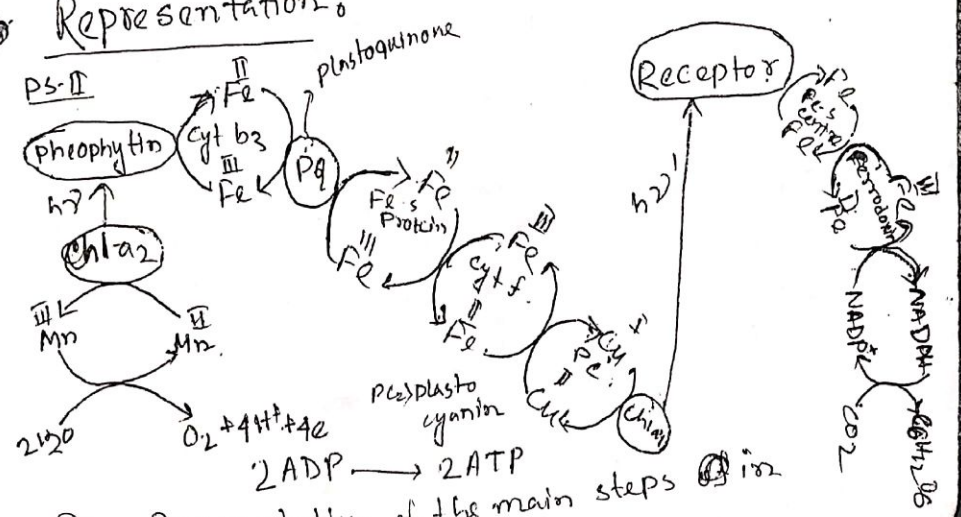 Representation.
PS-II
Pheophytin
hν
Chl-a2
III
Mn
II
Mn
2H2O
O2 + 4H+ + 4e
II
Fe
Cyt b3
III
Fe
plastoquinone
PQ
II
Fe
Fe-s
Protein
III
Fe
III
Fe
cyt f
II
Fe
Cu+
PC
II
Cu
PC=>plasto
cyanin
2ADP → 2ATP
Receptor
hν'
Fe
Fe-s
centre
Fe
III
Fe
Ferrodoxin
II
Fe
NADP+
NADPH
CO2
C6H12O6
of the main steps in